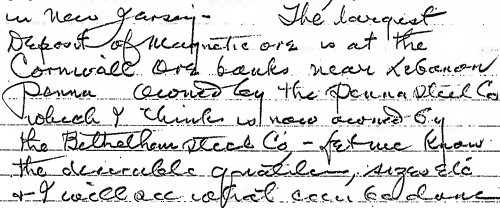 in New Jarsey - The largest
Deposit of magnetic ore is at the
Cornwall Ore banks near Lebanon
Penna owned by the Penna Steel Co
which I think is now owned by
the Bethelham Steel Co, - Let me know
the desirable qualities, sizes etc
& I will see what can be done